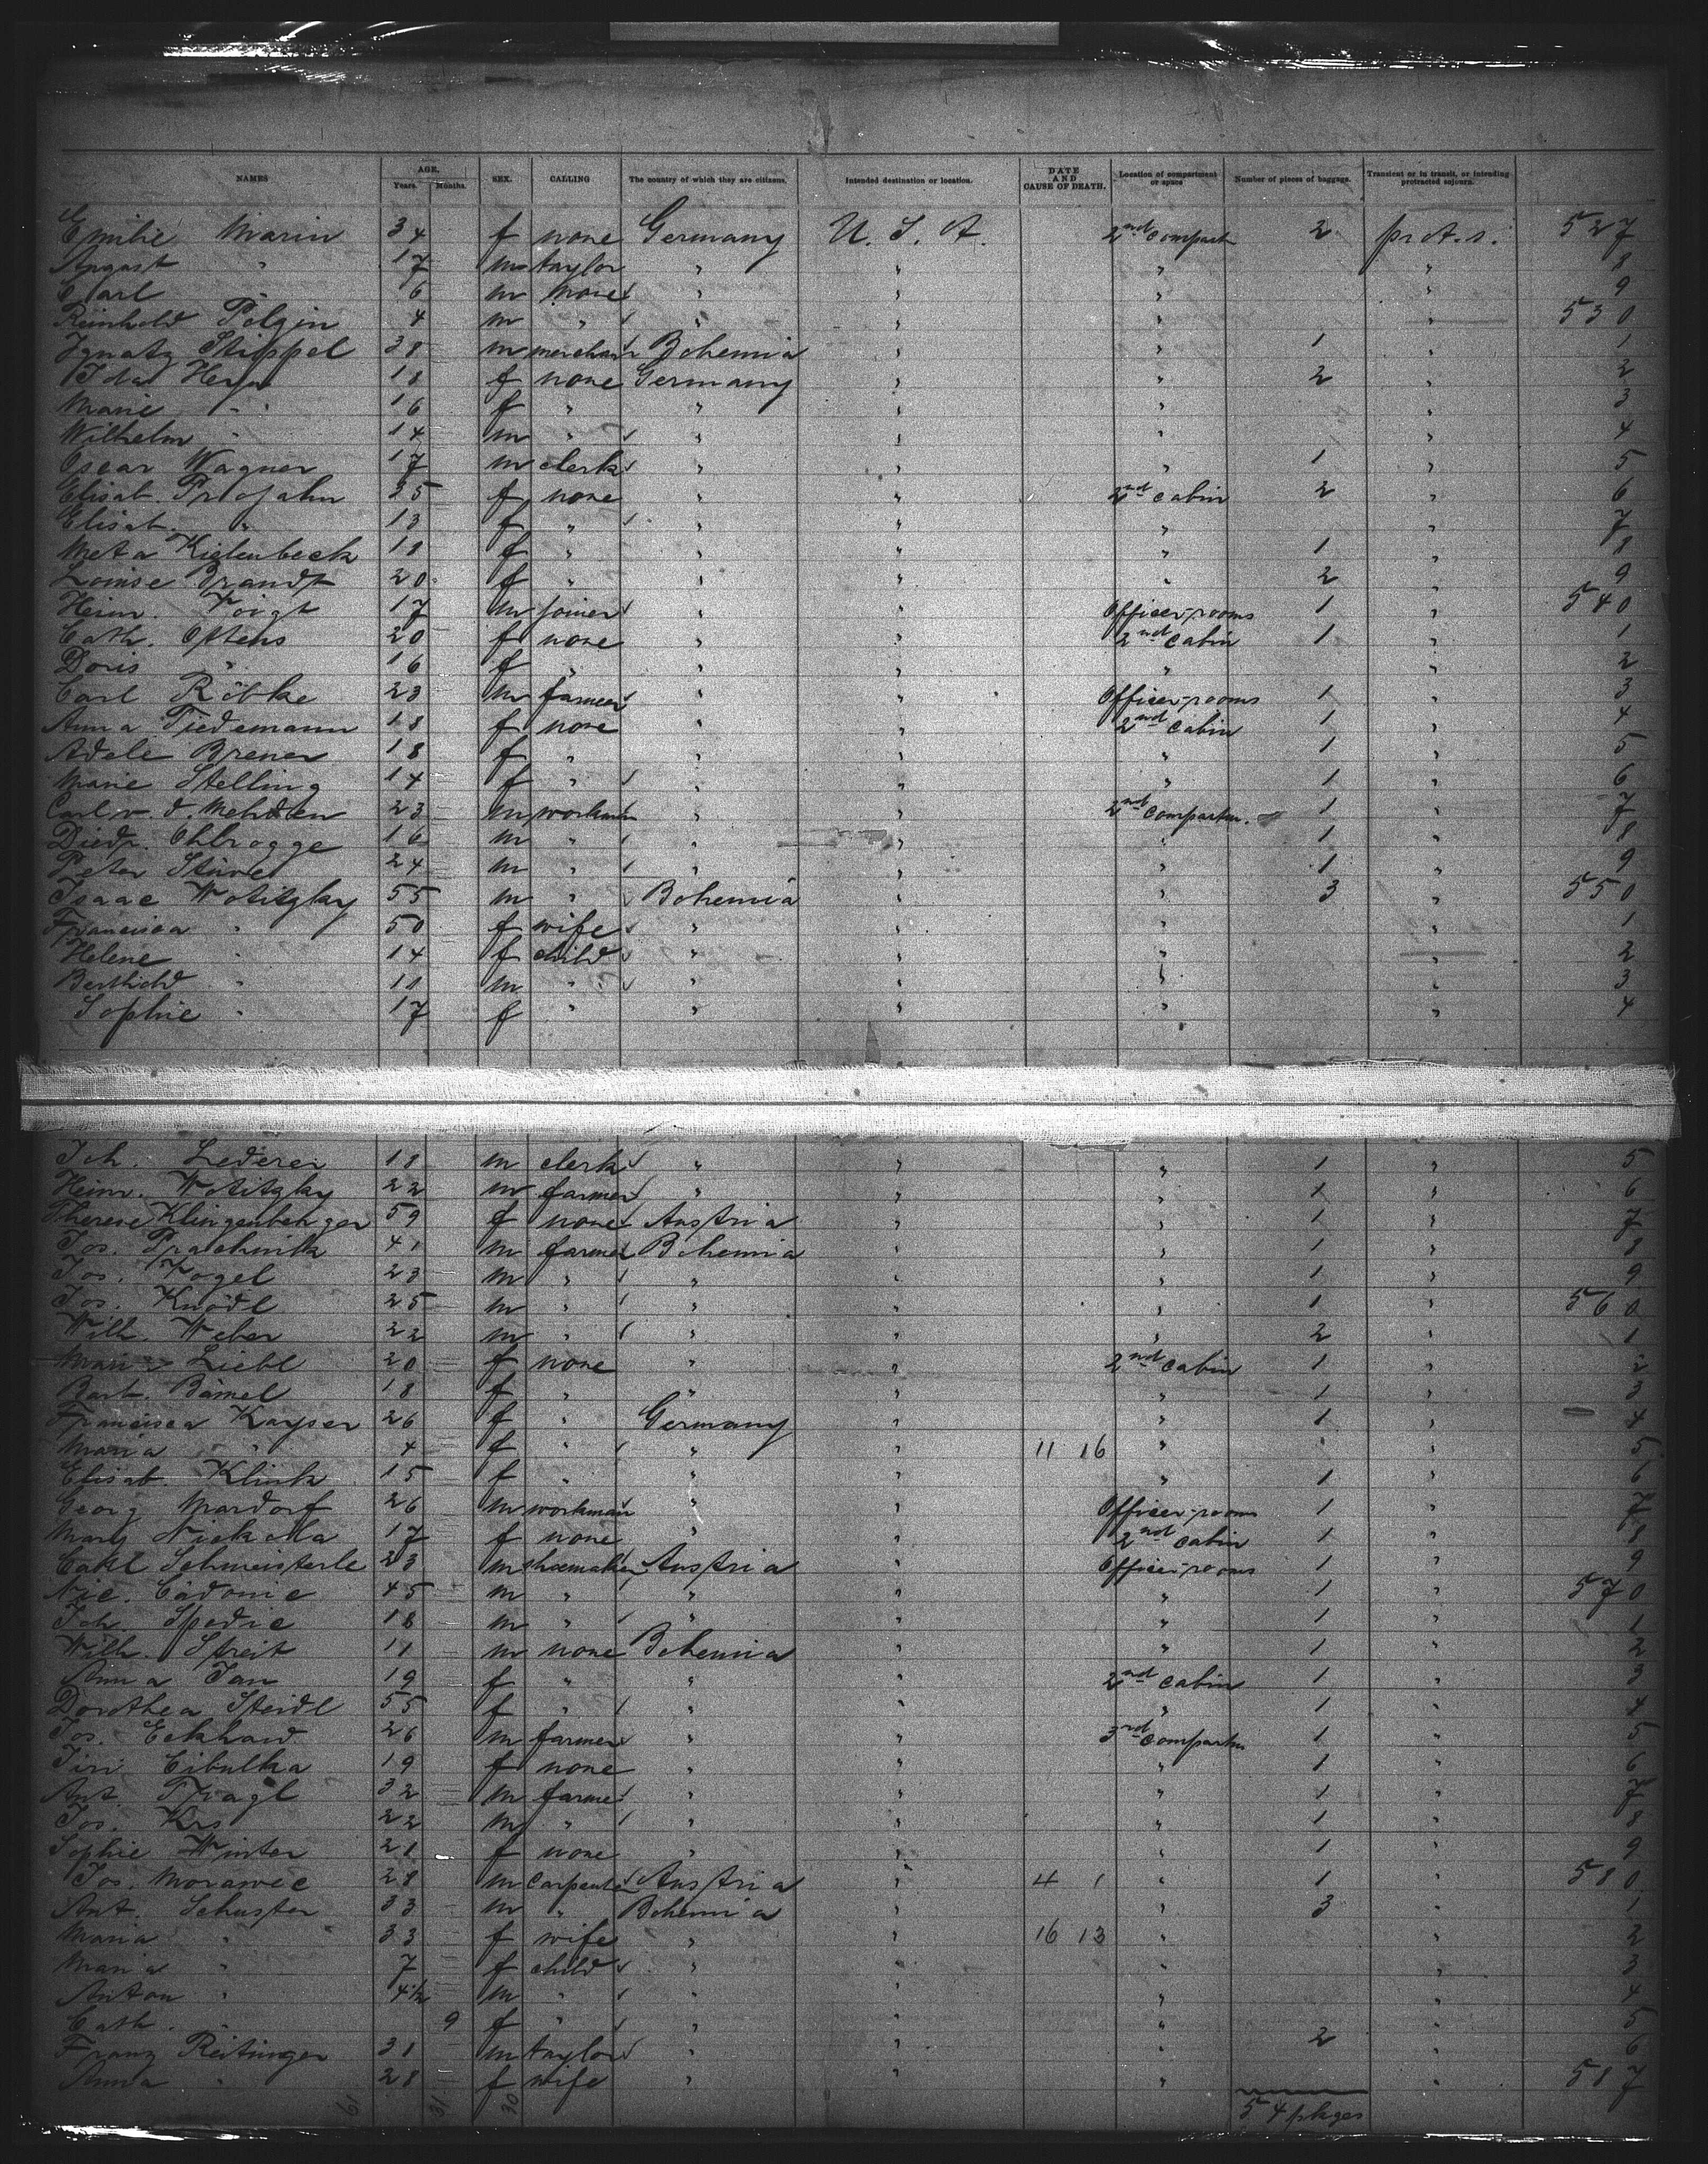 NAMES AGE. Years. Months. SEX. CALLING The country of which they are citizens. Intended destination or location. DATE AND CAUSE OF DEATH. Location of compartment or space Number of pieces of baggage. Transient or in transit, or intending protracted sojourn.
Emilie Marin 34 f none Germany U. S. A. 2nd compart 2 prot. s. 527
August " 17 m taylor " " " " 8
Carl " 6 m none " " " " 9
Reinhold Polzin 4 m " " " " " 530
Ignatz Stippel 38 m merchant Bohemia " " 1 " 1
Ida 18 f none Germany " " 2 " 2
Marie " 16 f " " " " " 3
Wilhelm " 14 m " " " " " 4
Oscar Wagner 17 m clerk " " " 1 " 5
Elisab. 35 f none " " 2nd cabin 2 " 6
Elisab. " 13 f " " " " " 7
Meta Kielenbeck 18 f " " " " 1 " 8
Louise Brandt 20 f " " " " 2 " 9
Heinr. Voigt 17 m joiner " " Officer-rooms 1 " 540
Cath. Oftens 20 f none " " 2nd cabin 1 " 1
Doris " 16 f " " " " " 2
Carl Röbke 23 m farmer " " Officer-rooms 1 " 3
Anna Tiedemann 18 f none " " 2nd cabin 1 " 4
Adele Brener 18 f " " " " 1 " 5
Marie Stelling 14 f " " " " 1 " 6
Carl v. d. Mehden 23 m workman " " 2nd compartm. 1 " 7
Diedr. Ohlrogge 16 m " " " " 1 " 8
Peter Stüve 24 m " " " " 1 " 9
Isaac Wotitzky 55 m " Bohemia " " 3 " 550
Francisca " 50 f wife " " " " 1
Helene " 14 f child " " " " 2
Berthold " 11 m " " " " " 3
Sophie " 17 f " " " " " 4
Joh. Lederer 18 m clerk " " " 1 " 5
Heinr. Wotitzky 22 m farmer " " " 1 " 6
Therese Klingenberger 59 f none Austria " " 1 " 7
Jos. Prachnik 41 m farmer Bohemia " " 1 " 8
Jos. Vogel 23 m " " " " 1 " 9
Jos. Knödl 25 m " " " " 1 " 560
Wilh. Weber 22 m " " " " 2 " 1
Marie Liebl 20 f none " " 2nd cabin 1 " 2
Barb. Bämel 18 f " " " " 1 " 3
Francisca Kayser 26 f " Germany " " 1 " 4
Maria " 4 f " " " 11 16 " " 5
Elisab. Klink 15 f " " " " 1 " 6
Georg Mardorf 26 m workman " " Officer-rooms 1 " 7
Marg 17 f none " " 2nd cabin 1 " 8
Carl Schmeisterle 23 m shoemaker Austria " Officer-rooms 1 " 9
Nic. Cadonic 45 m " " " " 1 " 570
Joh. Spodic 18 m " " " " 1 " 1
Wilh. Streit 11 m none Bohemia " " 1 " 2
Anna Jan 19 f " " " 2nd cabin 1 " 3
Dorothea Steidl 55 f " " " " 1 " 4
Jos. Eckhard 26 m farmer " " 3rd compartm 1 " 5
Jiri Cibulka 19 f none " " " 1 " 6
Ant. 32 m farmer " " " 1 " 7
Jos. Krs 22 m " " " " 1 " 8
Sophie Winter 21 f none " " " 1 " 9
Jos. Morawec 28 m carpenter Austria " 4 1 " 1 " 580
Ant. Schuster 33 m " Bohemia " " 3 " 1
Maria " 33 f wife " " 16 13 " " 2
Maria " 7 f child " " " " 3
Anton " 4½ m " " " " " 4
Cath. " 9 f " " " " " 5
Franz Reitinger 31 m taylor " " " 2 " 6
Anna " 28 f wife " " " " 587
61 31 30 54 pkges